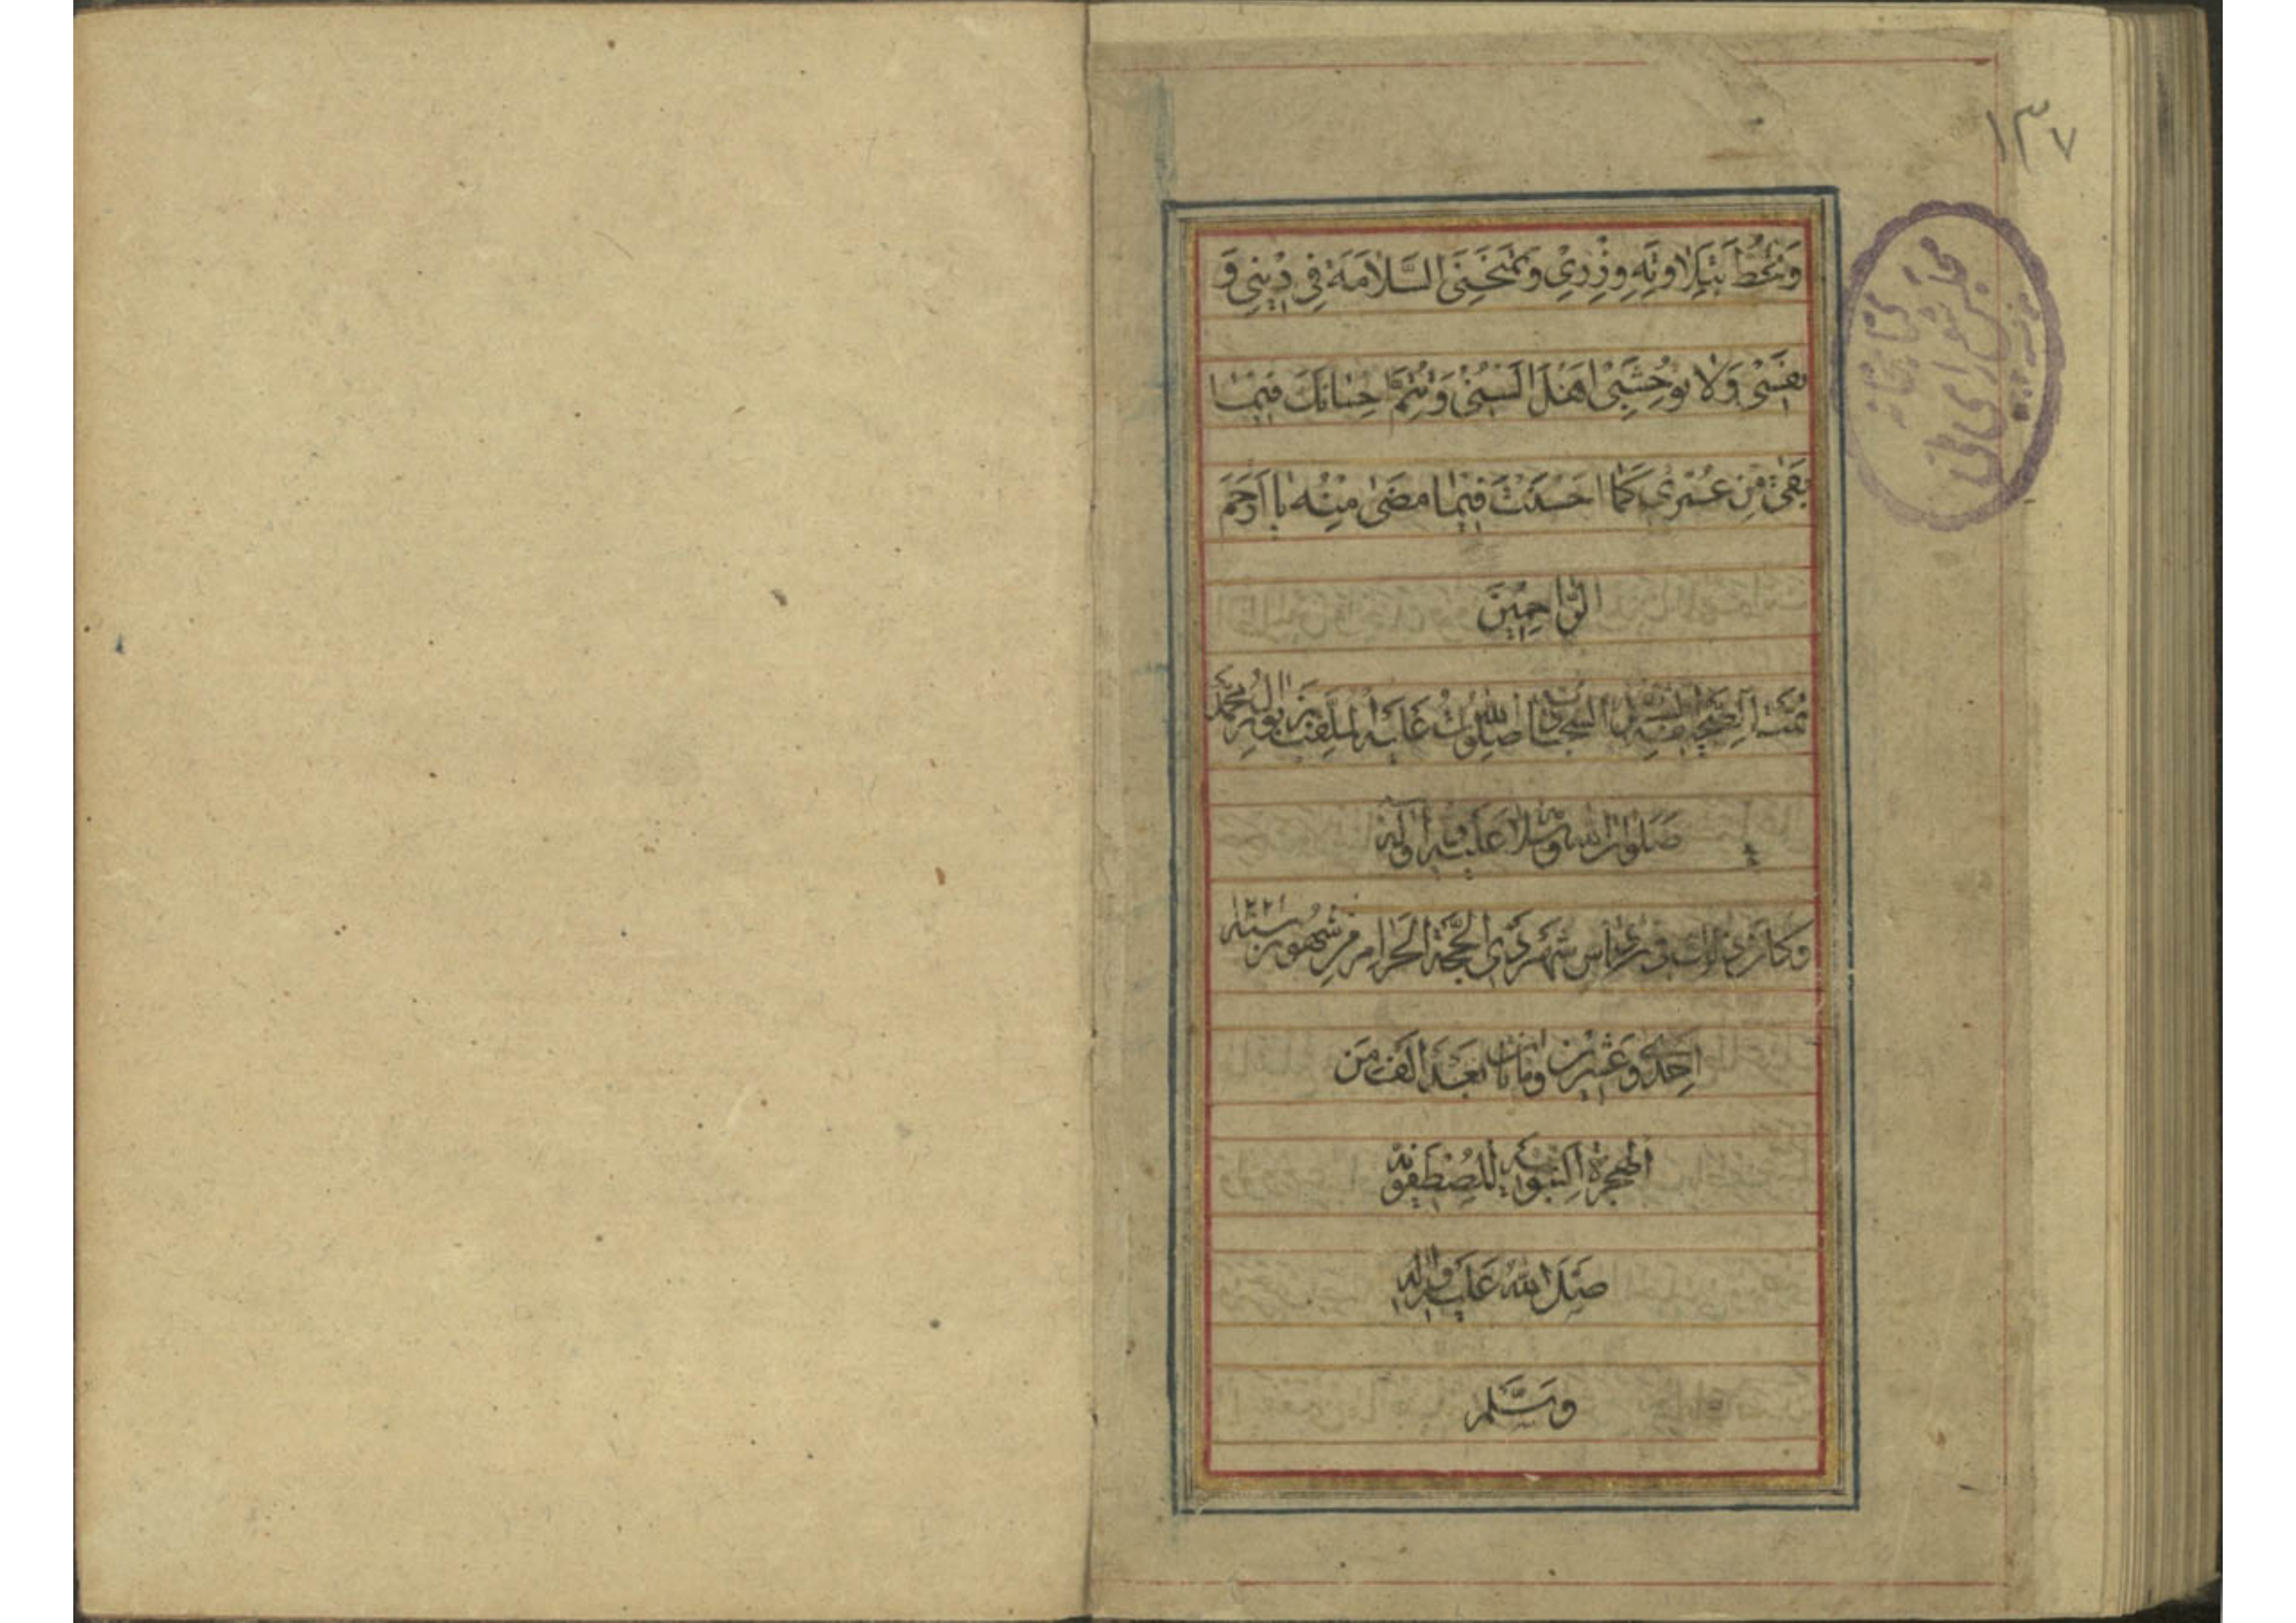 ١٣٧
كتابخانه
مجلس شورای ملی
وَتَحُطَّ بِتِلَاوَتِهِ وِزْرِي وَتَمْنَحَنِيَ السَّلَامَةَ فِي دِينِي وَ
نَفْسِي وَلَا تُوحِشَنِي أَهْلَ اُنْسِي وَتُتِمَّ إِحْسَانَكَ فِيمَا
بَقِيَ مِنْ عُمْرِي كَمَا أَحْسَنْتَ فِيمَا مَضَى مِنْهُ يَا أَرْحَمَ
الرَّاحِمِينَ
تَمَّتِ الصَّحِيفَةُ السَّجَّادِيَّةُ عَلَيْهِ الْمُلَقَّبَةُ بِزَبُورِ آلِ مُحَمَّدٍ
صَلَوَاتُ اللهِ وَسَلَامُهُ عَلَيْهِ وَآلِهِ
وَكَانَ ذَلِكَ فِي رَأْسِ شَهْرِ ذِي الْحِجَّةِ الْحَرَامِ مِنْ شُهُورِ سَنَةِ ١٢٢١
إِحْدَى وَعِشْرِينَ وَمِائَتَانِ بَعْدَ أَلْفٍ مِنَ
الْهِجْرَةِ النَّبَوِيَّةِ الْمُصْطَفَوِيَّةِ
صَلَّى اللهُ عَلَيْهِ وَآلِهِ
وَسَلَّمَ